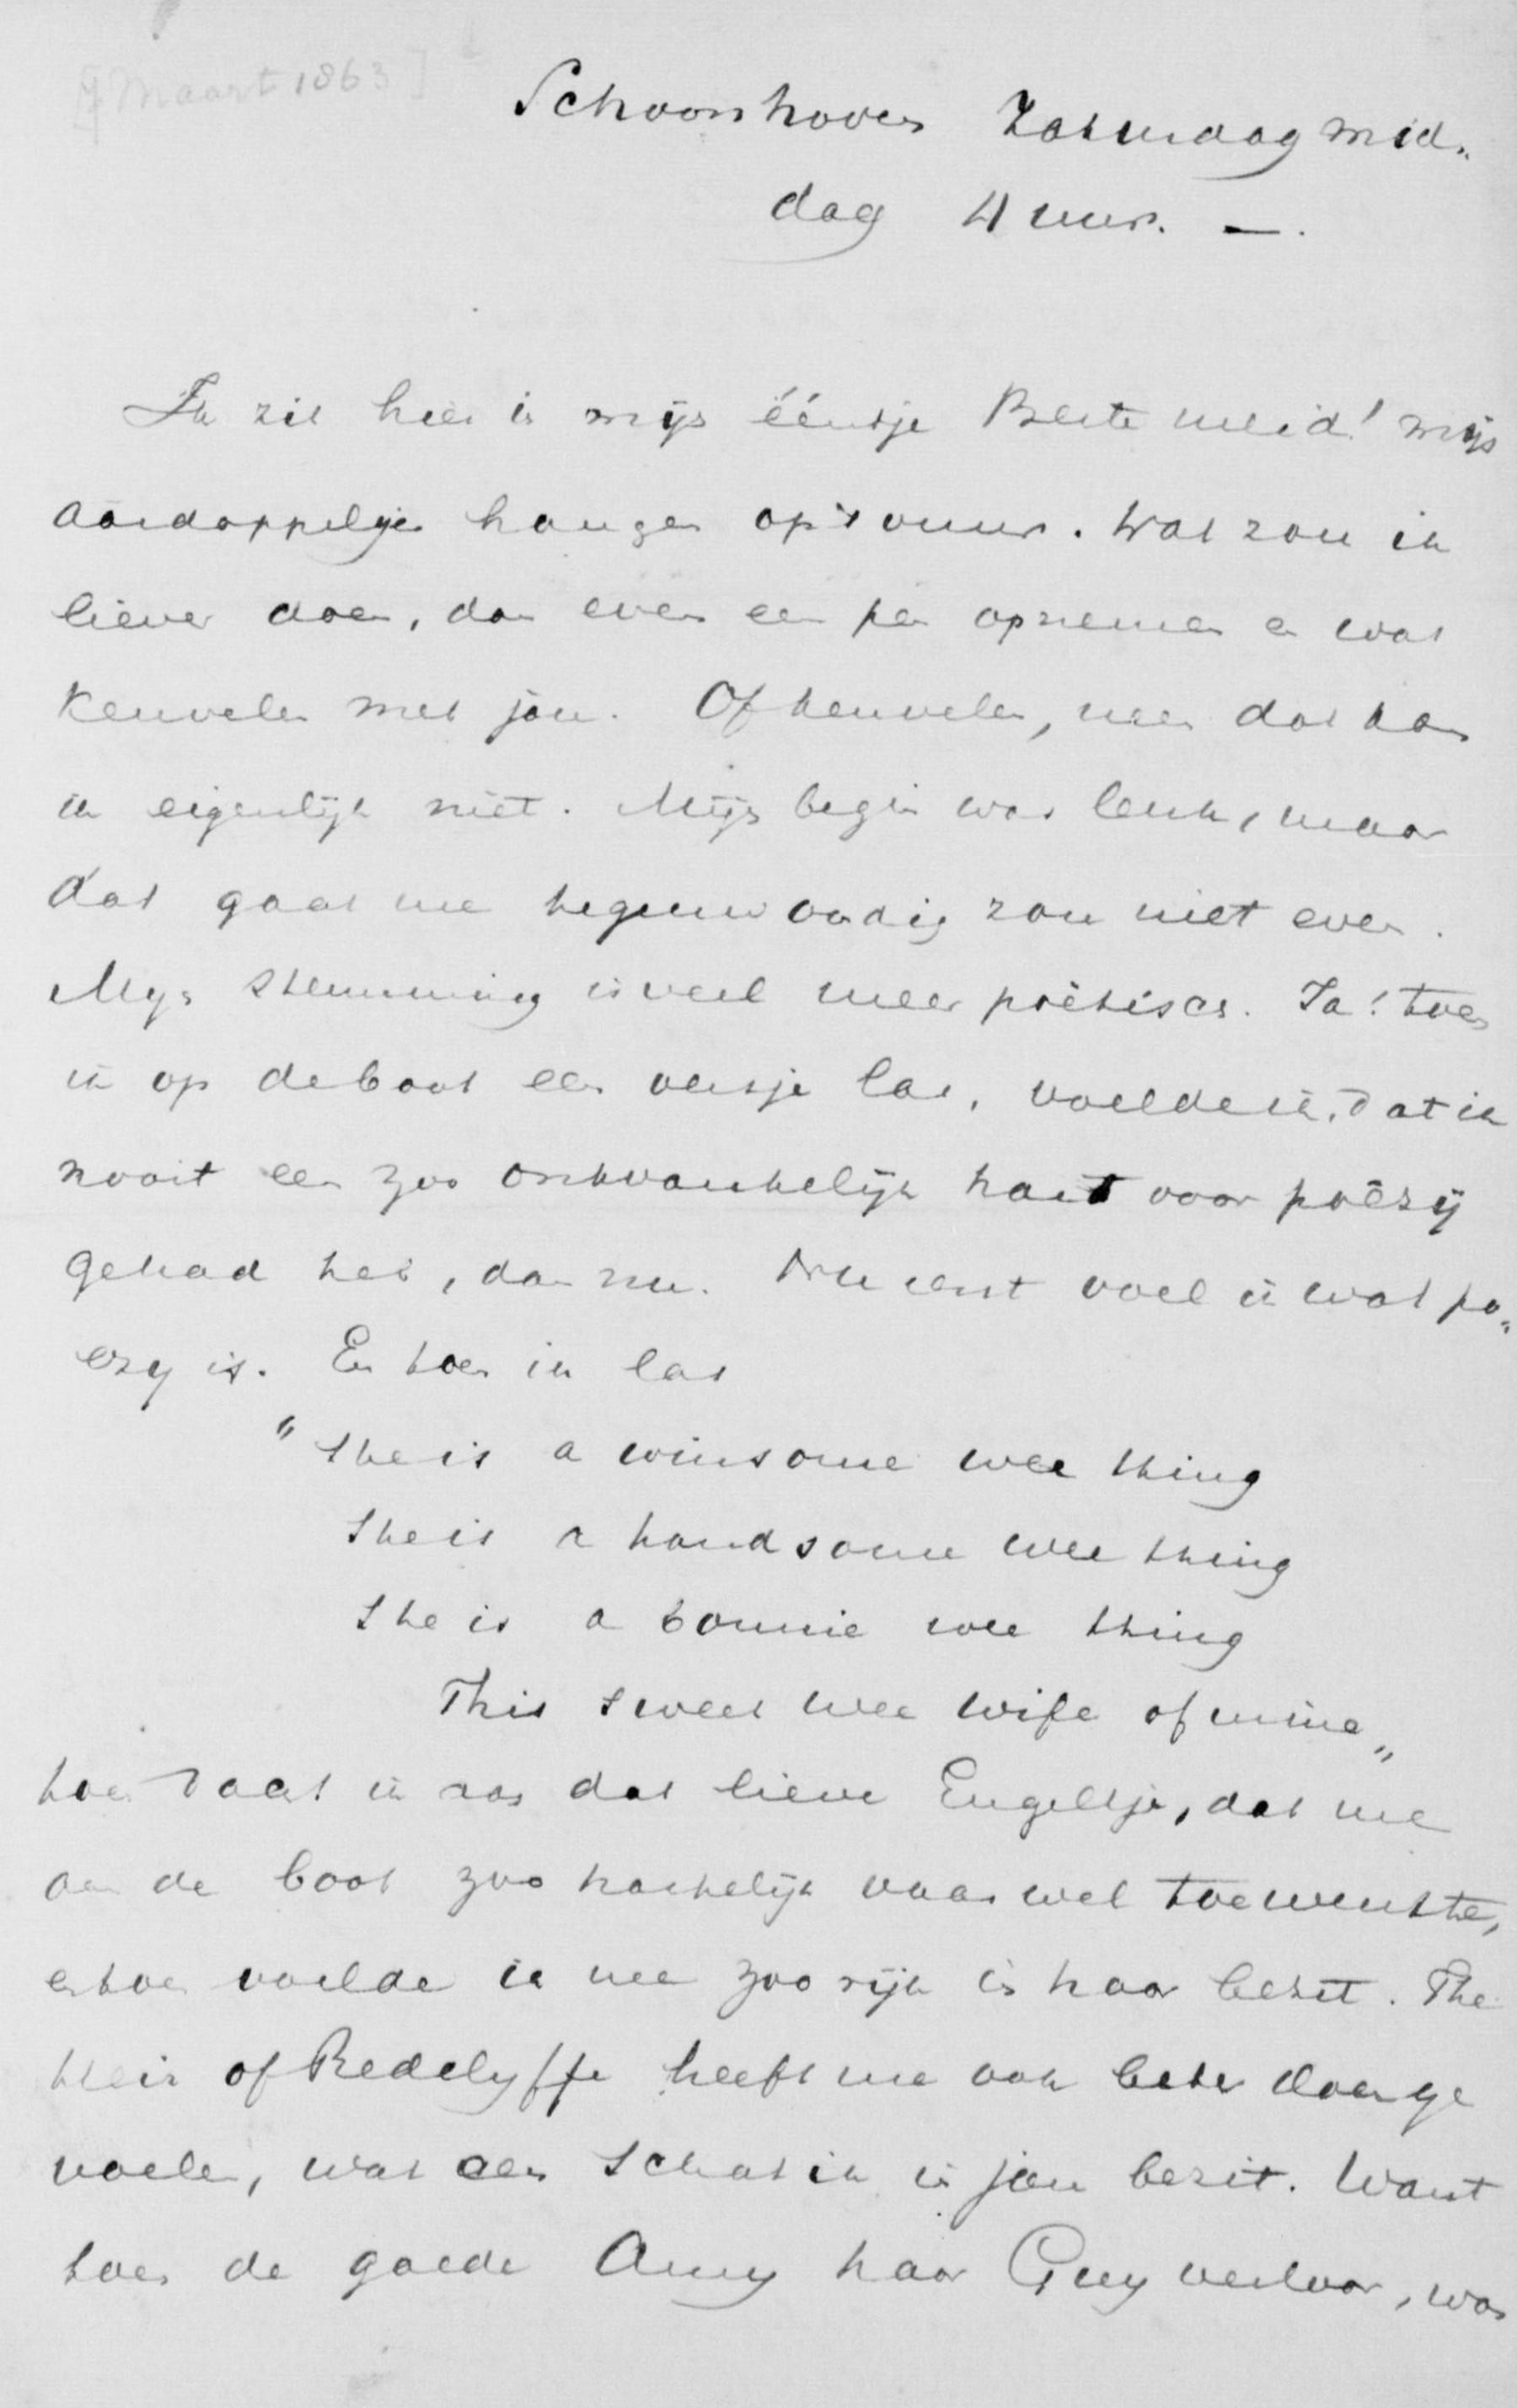 [7 Maart 1863]
Schoonhoven Zaturdagmid„
dag 4 uur. —.
Ik zit hier in mijn ééntje Beste meid! mijn
aardappeltjes hangen op 't vuur. Wat zou ik
liever doen, dan even een pen opnemen en wat
keuvelen met jou. Of keuvelen, neen dat kan
ik eigenlijk niet. Mijn begin was leuk, maar
dat gaat me tegenwoordig zou niet even.
Myn stemming is veel meer poëtisch. Ja! toen
ik op de boot een versje las, voelde ik, dat ik
nooit een zoo ontvankelijk hart voor poëzij
gehad heb, dan nu. Nu eerst voel ik wat po„
ezy is. En toen ik las
"She is a winsome wee thing
She is a handsome wee thing
She is a bonnie wee thing
This sweet wee wife of mine„
toen dacht ik aan dat lieve Engeltje, dat me
aan de boot zoo hartelijk vaarwel toewenschte,
en toen voelde ik me zoo rijk in haar bezit. The
Heir of Redclyffe heeft me ook beter doen ge
voelen, wat een schat ik in jou bezit. Want
toen de goede Amy haar Guy verloor, was